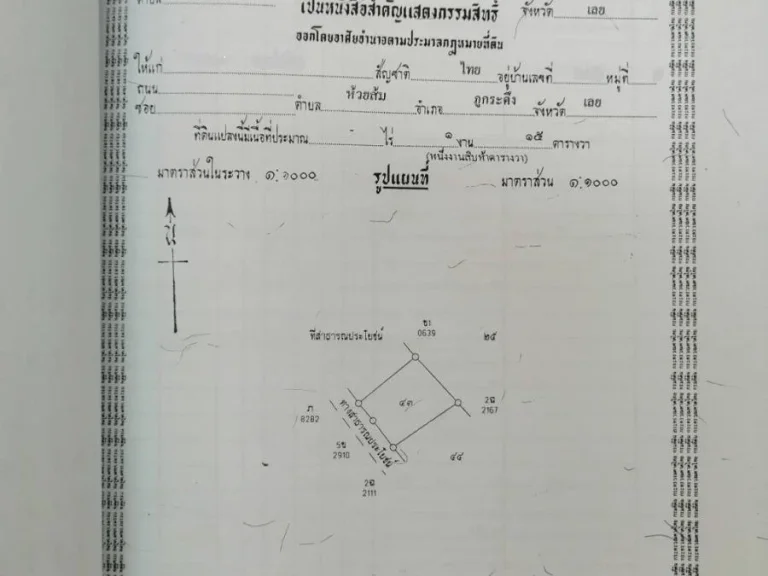 เป็นหนังสือสำคัญแสดงกรรมสิทธิ์ จังหวัด เลย
ออกโดยอาศัยอำนาจตามประมวลกฎหมายที่ดิน
ให้แก่ สัญชาติ ไทย อยู่บ้านเลขที่ หมู่ที่
ถนน
ซอย ตำบล ห้วยส้ม อำเภอ ภูกระดึง จังหวัด เลย
ที่ดินแปลงนี้มีเนื้อที่ประมาณ ไร่ ๑ งาน ๑๕ ตารางวา
(หนึ่งงานสิบห้าตารางวา)
มาตราส่วนในระวาง ๑:๑๐๐๐ รูปแผนที่ มาตราส่วน ๑:๑๐๐๐
ที่สาธารณประโยชน์
ข1
0639
๒๕
๔๓
2ฉ
2167
ภ
8282
ทางสาธารณประโยชน์
5ข
2910
๔๔
2ฉ
2111